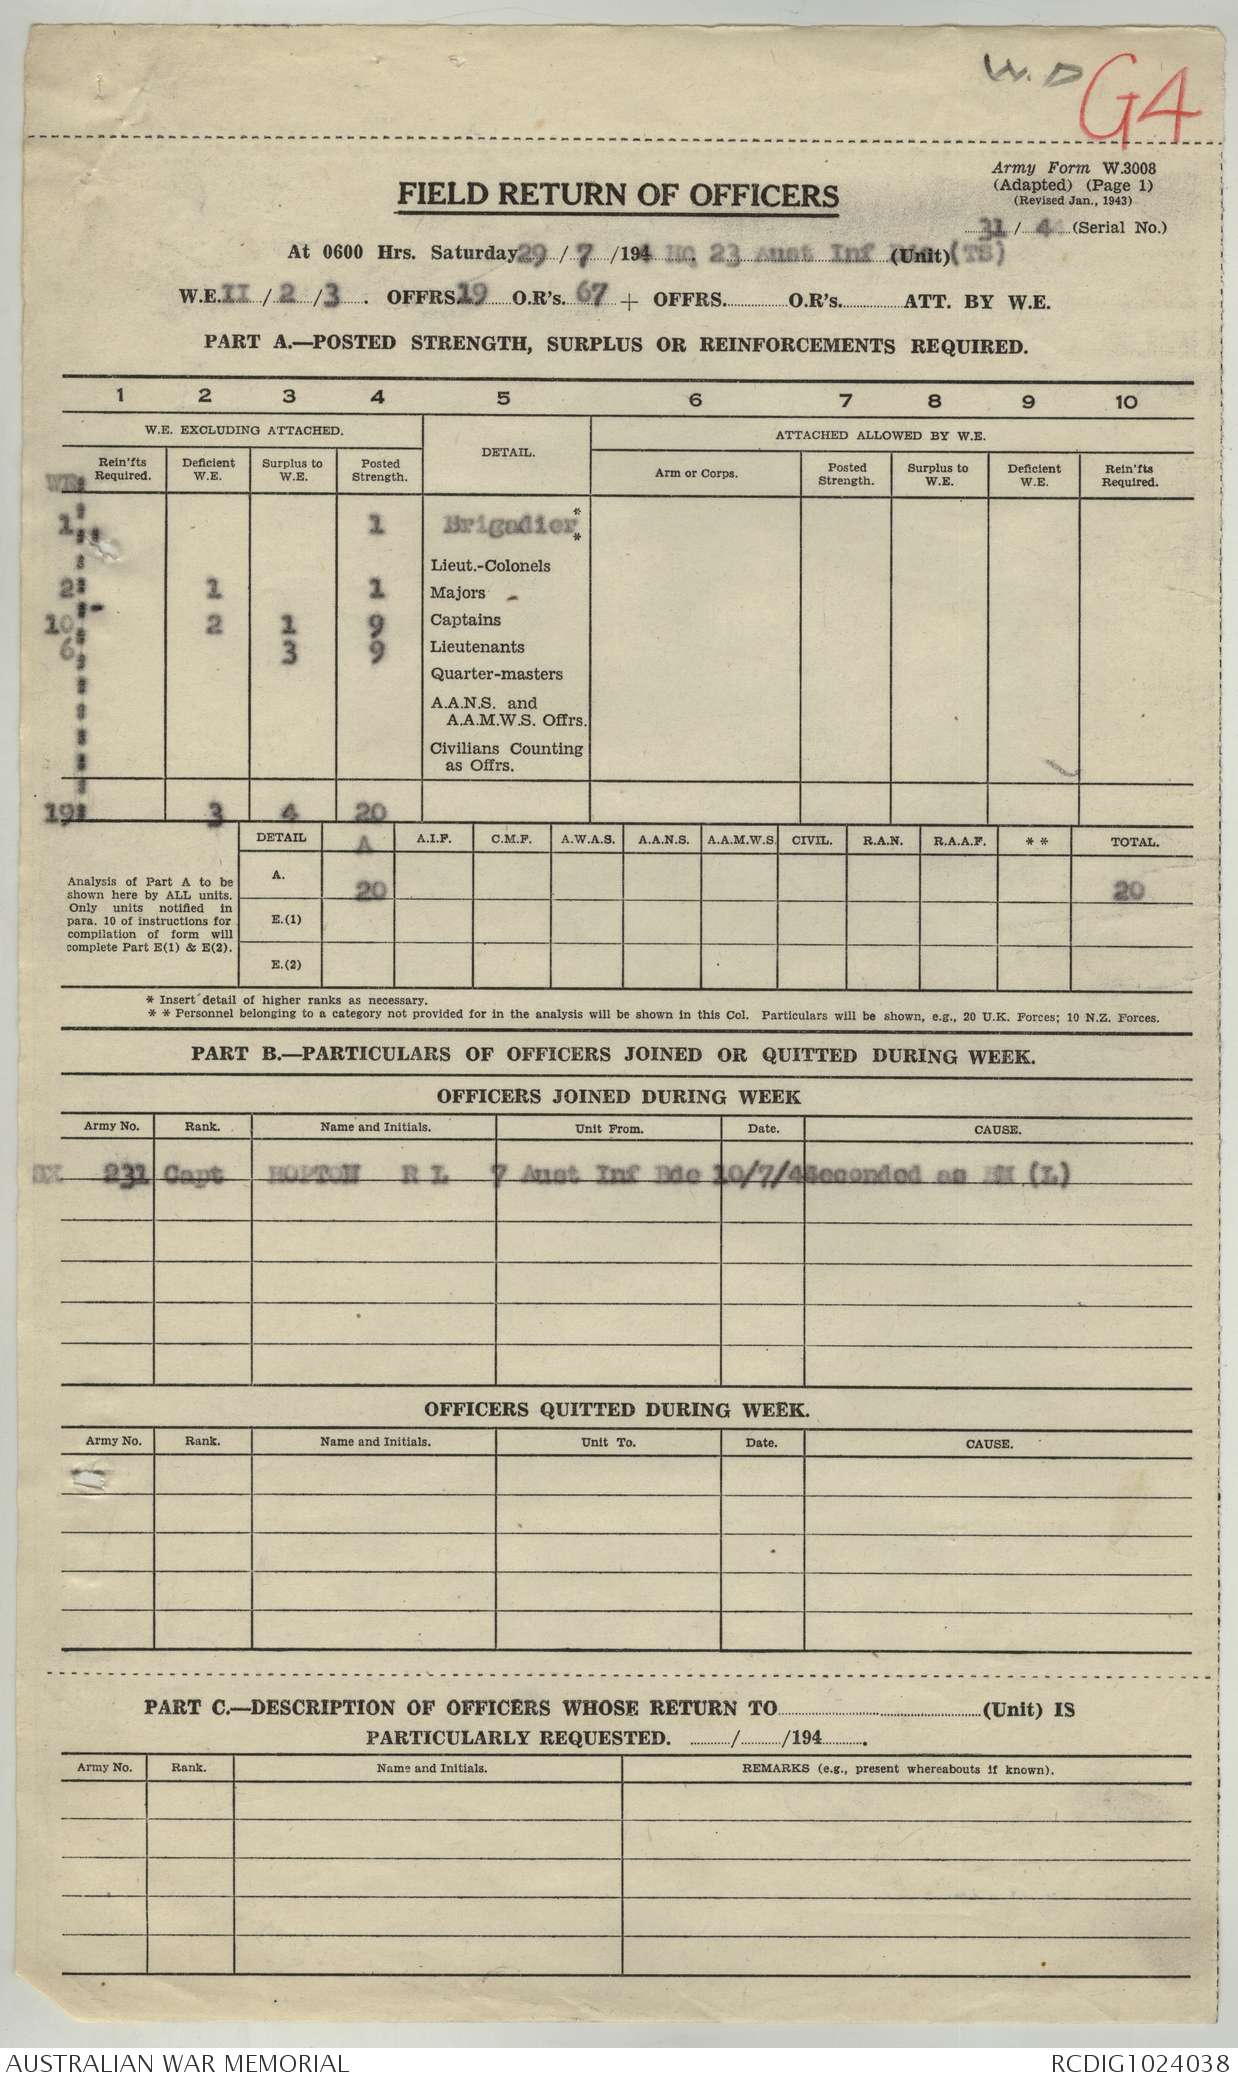 W.D G4
Army Form W.3008
(Adapted) (Page 1)
(Revised Jan., 1943)
FIELD RETURN OF OFFICERS
31 / 44 (Serial No.)
At 0600 Hrs. Saturday 29 / 7 /194 4 HQ 23 Aust Inf Bde (Unit) (TS)
W.E. II / 2 / 3 . OFFRS. 19 O.R's. 67 + OFFRS. O.R's. ATT. BY W.E.
PART A.—POSTED STRENGTH, SURPLUS OR REINFORCEMENTS REQUIRED.
1 2 3 4 5 6 7 8 9 10
W.E. EXCLUDING ATTACHED. DETAIL. ATTACHED ALLOWED BY W.E.
Rein'fts Required. Deficient W.E. Surplus to W.E. Posted Strength. Arm or Corps. Posted Strength. Surplus to W.E. Deficient W.E. Rein'fts Required.
WE:
1 1 Brigadier * *
Lieut.-Colonels
2 1 1 Majors
10 2 1 9 Captains
6 3 9 Lieutenants
Quarter-masters
A.A.N.S. and
A.A.M.W.S. Offrs.
Civilians Counting
as Offrs.
19 3 4 20
DETAIL A A.I.F. C.M.F. A.W.A.S. A.A.N.S. A.A.M.W.S. CIVIL. R.A.N. R.A.A.F. * * TOTAL.
Analysis of Part A to be
shown here by ALL units.
Only units notified in
para. 10 of instructions for
compilation of form will
complete Part E(1) & E(2).
A. 20 20
E.(1)
E.(2)
* Insert detail of higher ranks as necessary.
* * Personnel belonging to a category not provided for in the analysis will be shown in this Col. Particulars will be shown, e.g., 20 U.K. Forces; 10 N.Z. Forces.
PART B.—PARTICULARS OF OFFICERS JOINED OR QUITTED DURING WEEK.
OFFICERS JOINED DURING WEEK
Army No. Rank. Name and Initials. Unit From. Date. CAUSE.
SX 231 Capt HOPTON R L 7 Aust Inf Bde 10/7/44 Seconded as BM (L)
OFFICERS QUITTED DURING WEEK.
Army No. Rank. Name and Initials. Unit To. Date. CAUSE.
PART C.—DESCRIPTION OF OFFICERS WHOSE RETURN TO (Unit) IS
PARTICULARLY REQUESTED. / /194 .
Army No. Rank. Name and Initials. REMARKS (e.g., present whereabouts if known).
AUSTRALIAN WAR MEMORIAL RCDIG1024038